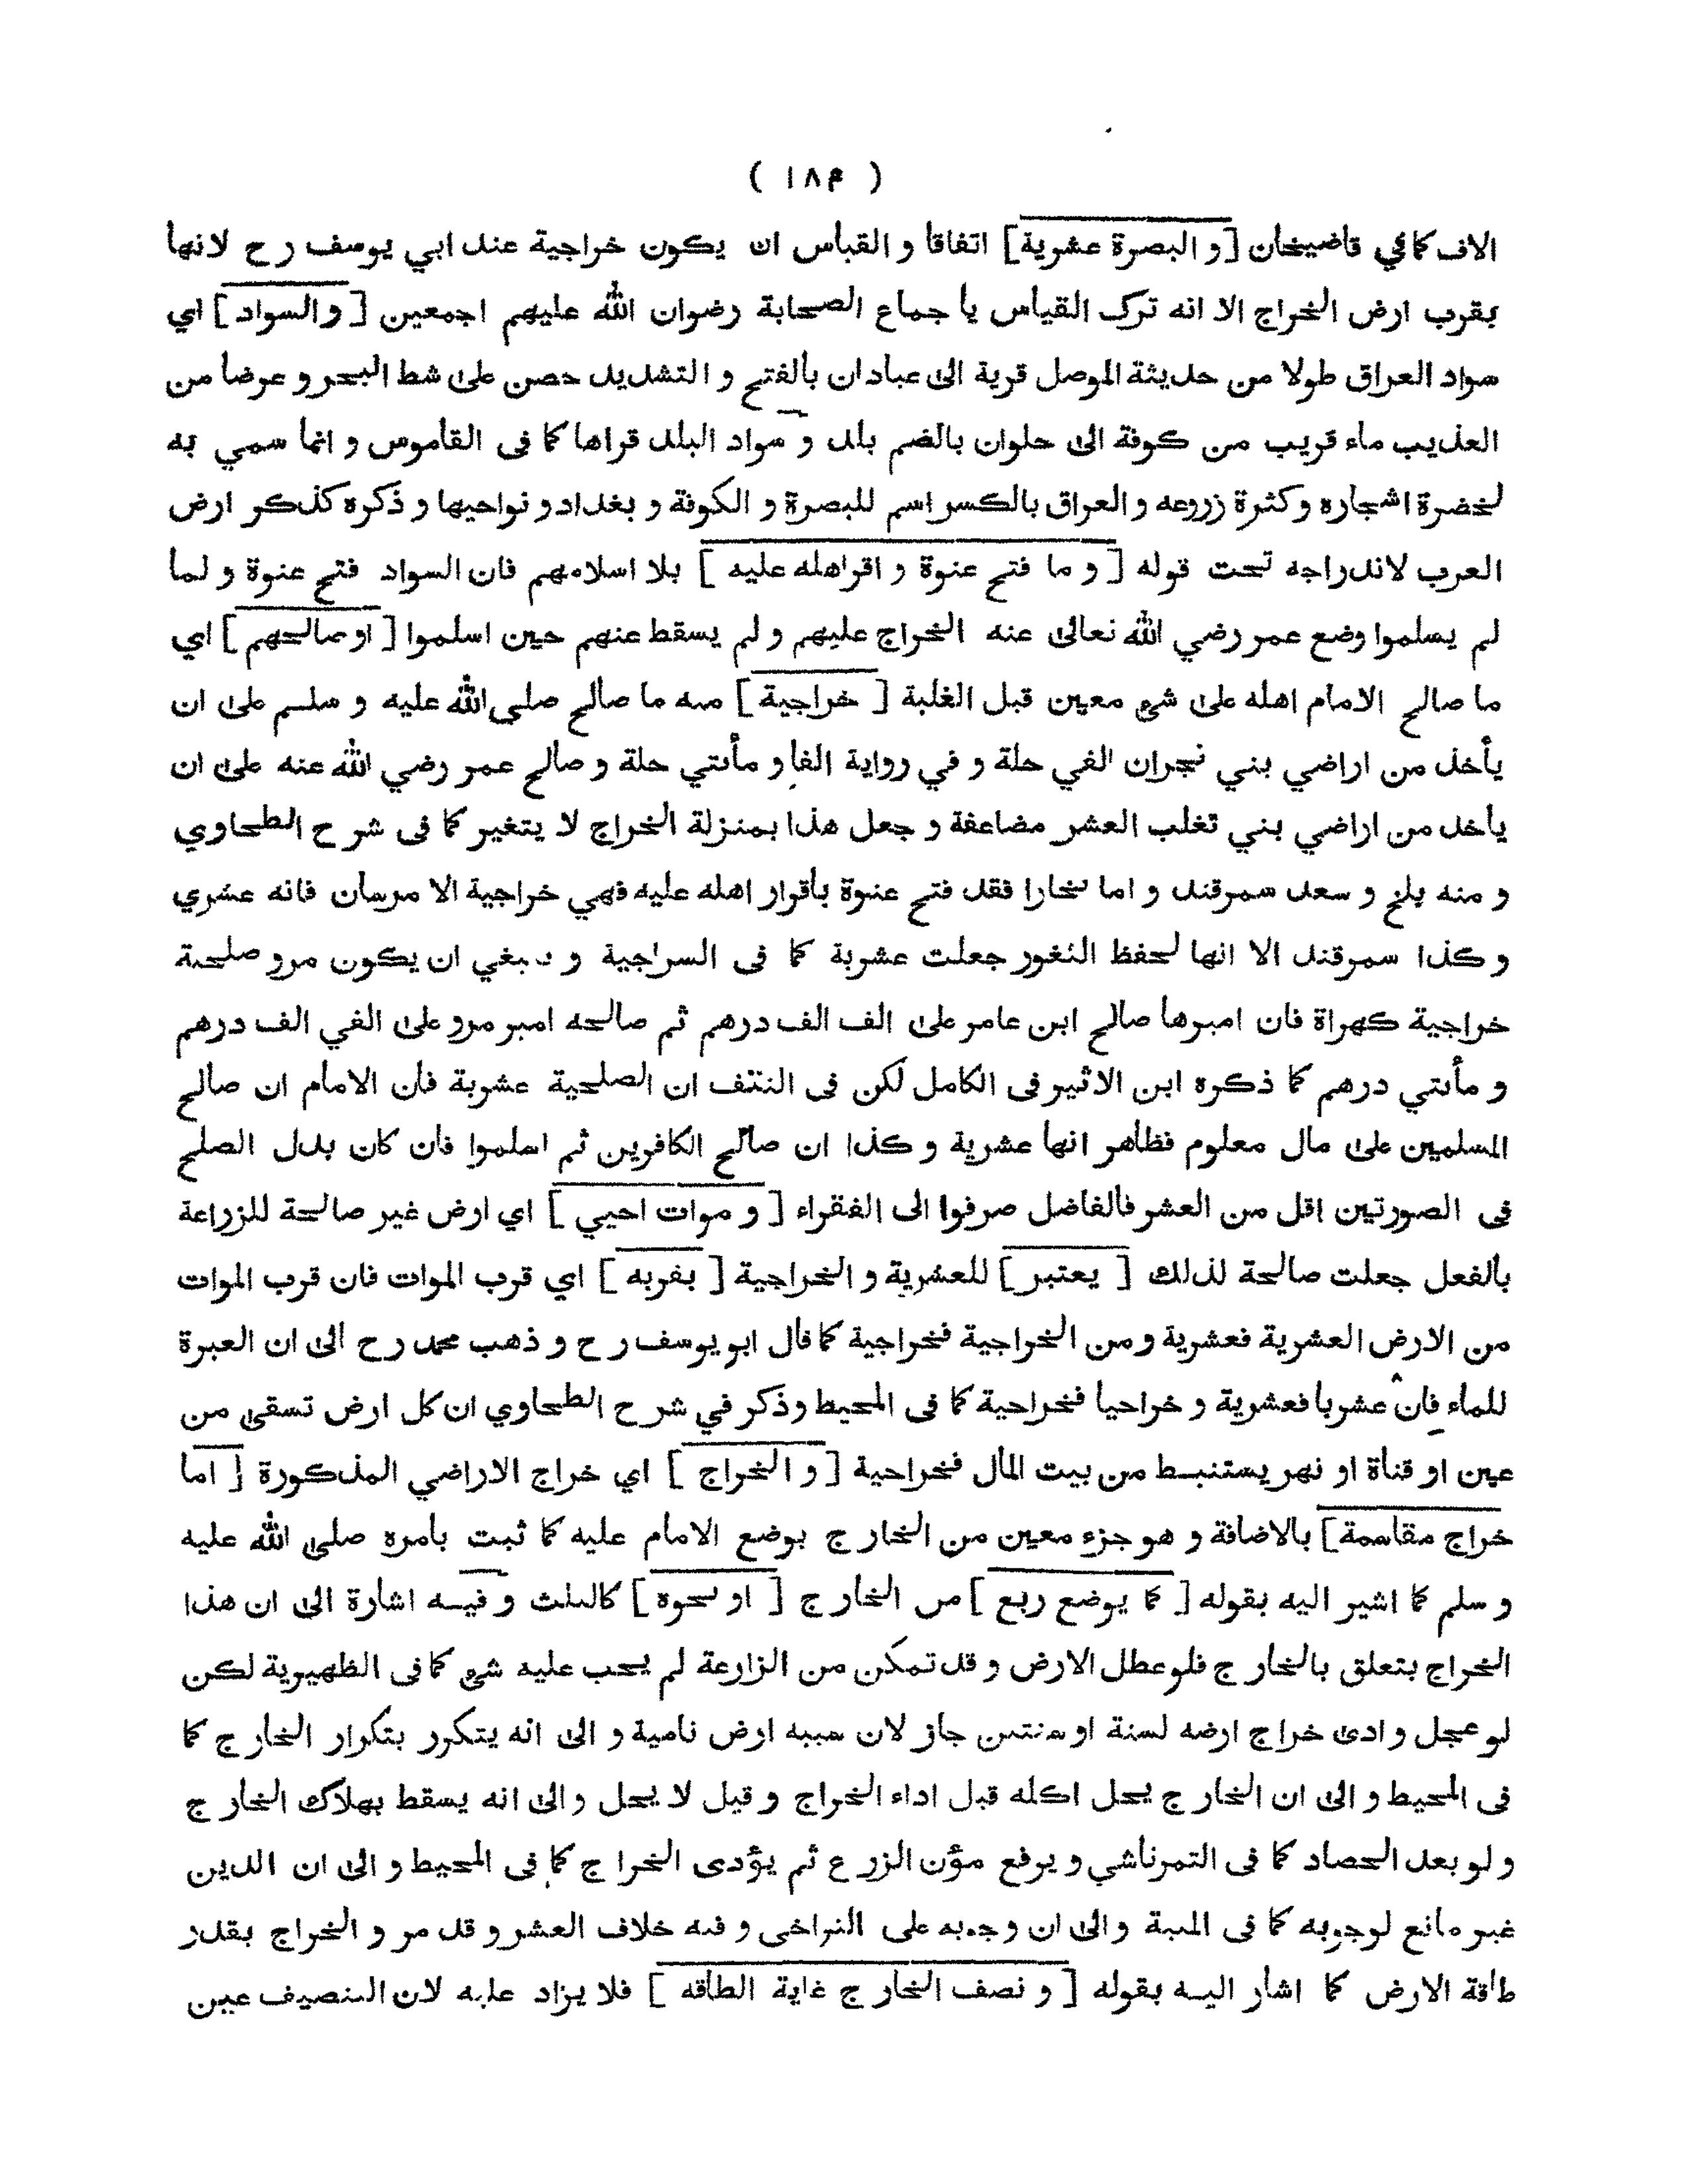 ( ١٨۴ )
الاف كما في قاضيخان [ و البصرة عشرية ] اتفاقا و القياس ان يكون خراجية عند ابي يوسف رح لانها
بقرب ارض الخراج الا انه ترك القياس با جماع الصحابة رضوان الله عليهم اجمعين [ و السواد ] اي
سواد العراق طولا من حديثة الموصل قرية الى عبادان بالفتح و التشديد حصن على شط البحر و عرضا من
العذيب ماء قريب من كوفة الى حلوان بالضم بلد و سواد البلد قراها كما فى القاموس و انما سمي به
لخضرة اشجاره و كثرة زروعه و العراق بالكسر اسم للبصرة و الكوفة و بغداد و نواحيها و ذكره كذكر ارض
العرب لاندراجه تحت قوله [ و ما فتح عنوة و اقر اهله عليه ] بلا اسلامهم فان السواد فتح عنوة و لما
لم يسلموا وضع عمر رضي الله تعالى عنه الخراج عليهم و لم يسقط عنهم حين اسلموا [ او صالحهم ] اي
ما صالح الامام اهله على شئ معين قبل الغلبة [ خراجية ] منه ما صالح صلى الله عليه و سلم على ان
يأخذ من اراضي بني نجران الفي حلة و في رواية الفا و مأتي حلة و صالح عمر رضي الله عنه على ان
يأخذ من اراضي بني تغلب العشر مضاعفة و جعل هذا بمنزلة الخراج لا يتغير كما فى شرح الطحاوي
و منه بلخ و سعد سمرقند و اما بخارا فقد فتح عنوة باقرار اهله عليه فهي خراجية الا مرسان فانه عشري
و كذا سمرقند الا انها لحفظ الثغور جعلت عشرية كما فى السراجية و ينبغي ان يكون مرو صلحية
خراجية كهراة فان اميرها صالح ابن عامر على الف الف درهم ثم صالحه امير مرو على الفي الف درهم
و مأتي درهم كما ذكره ابن الاثير فى الكامل لكن فى النتف ان الصلحية عشرية فان الامام ان صالح
المسلمين على مال معلوم فظاهر انها عشرية و كذا ان صالح الكافرين ثم اسلموا فان كان بدل الصلح
فى الصورتين اقل من العشر فالفاضل صرفوا الى الفقراء [ و موات احيي ] اي ارض غير صالحة للزراعة
بالفعل جعلت صالحة لذلك [ يعتبر ] للعشرية و الخراجية [ بقربه ] اي قرب الموات فان قرب الموات
من الارض العشرية فعشرية و من الخراجية فخراجية كما قال ابو يوسف رح و ذهب محمد رح الى ان العبرة
للماء فان عشريا فعشرية و خراجيا فخراجية كما فى المحيط و ذكر في شرح الطحاوي ان كل ارض تسقى من
عين او قناة او نهر يستنبط من بيت المال فخراجية [ و الخراج ] اي خراج الاراضي المذكورة [ اما
خراج مقاسمة ] بالاضافة و هو جزء معين من الخارج بوضع الامام عليه كما ثبت بامره صلى الله عليه
و سلم كما اشير اليه بقوله [ كما يوضع ربع ] من الخارج [ او نحوه ] كالثلث و فيه اشارة الى ان هذا
الخراج يتعلق بالخارج فلو عطل الارض و قد تمكن من الزارعة لم يجب عليه شئ كما فى الظهيرية لكن
لو عجل و ادى خراج ارضه لسنة او سنتين جاز لان سببه ارض نامية و الى انه يتكرر بتكرار الخارج كما
فى المحيط و الى ان الخارج يحل اكله قبل اداء الخراج و قيل لا يحل و الى انه يسقط بهلاك الخارج
و لو بعد الحصاد كما فى التمرتاشي و يرفع مؤن الزرع ثم يؤدى الخراج كما فى المحيط و الى ان الدين
غير مانع لوجوبه كما فى المنية و الى ان وجوبه على التراخى و فيه خلاف العشر و قد مر و الخراج بقدر
طاقة الارض كما اشار اليه بقوله [ و نصف الخارج غاية الطاقه ] فلا يزاد عليه لان التنصيف عين